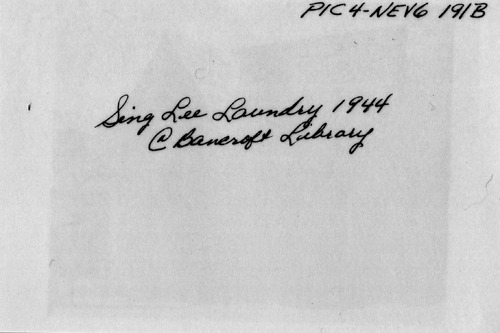 PIC4-NEV6 191B
Sing Lee Laundry 1944
@ Bancroft Library